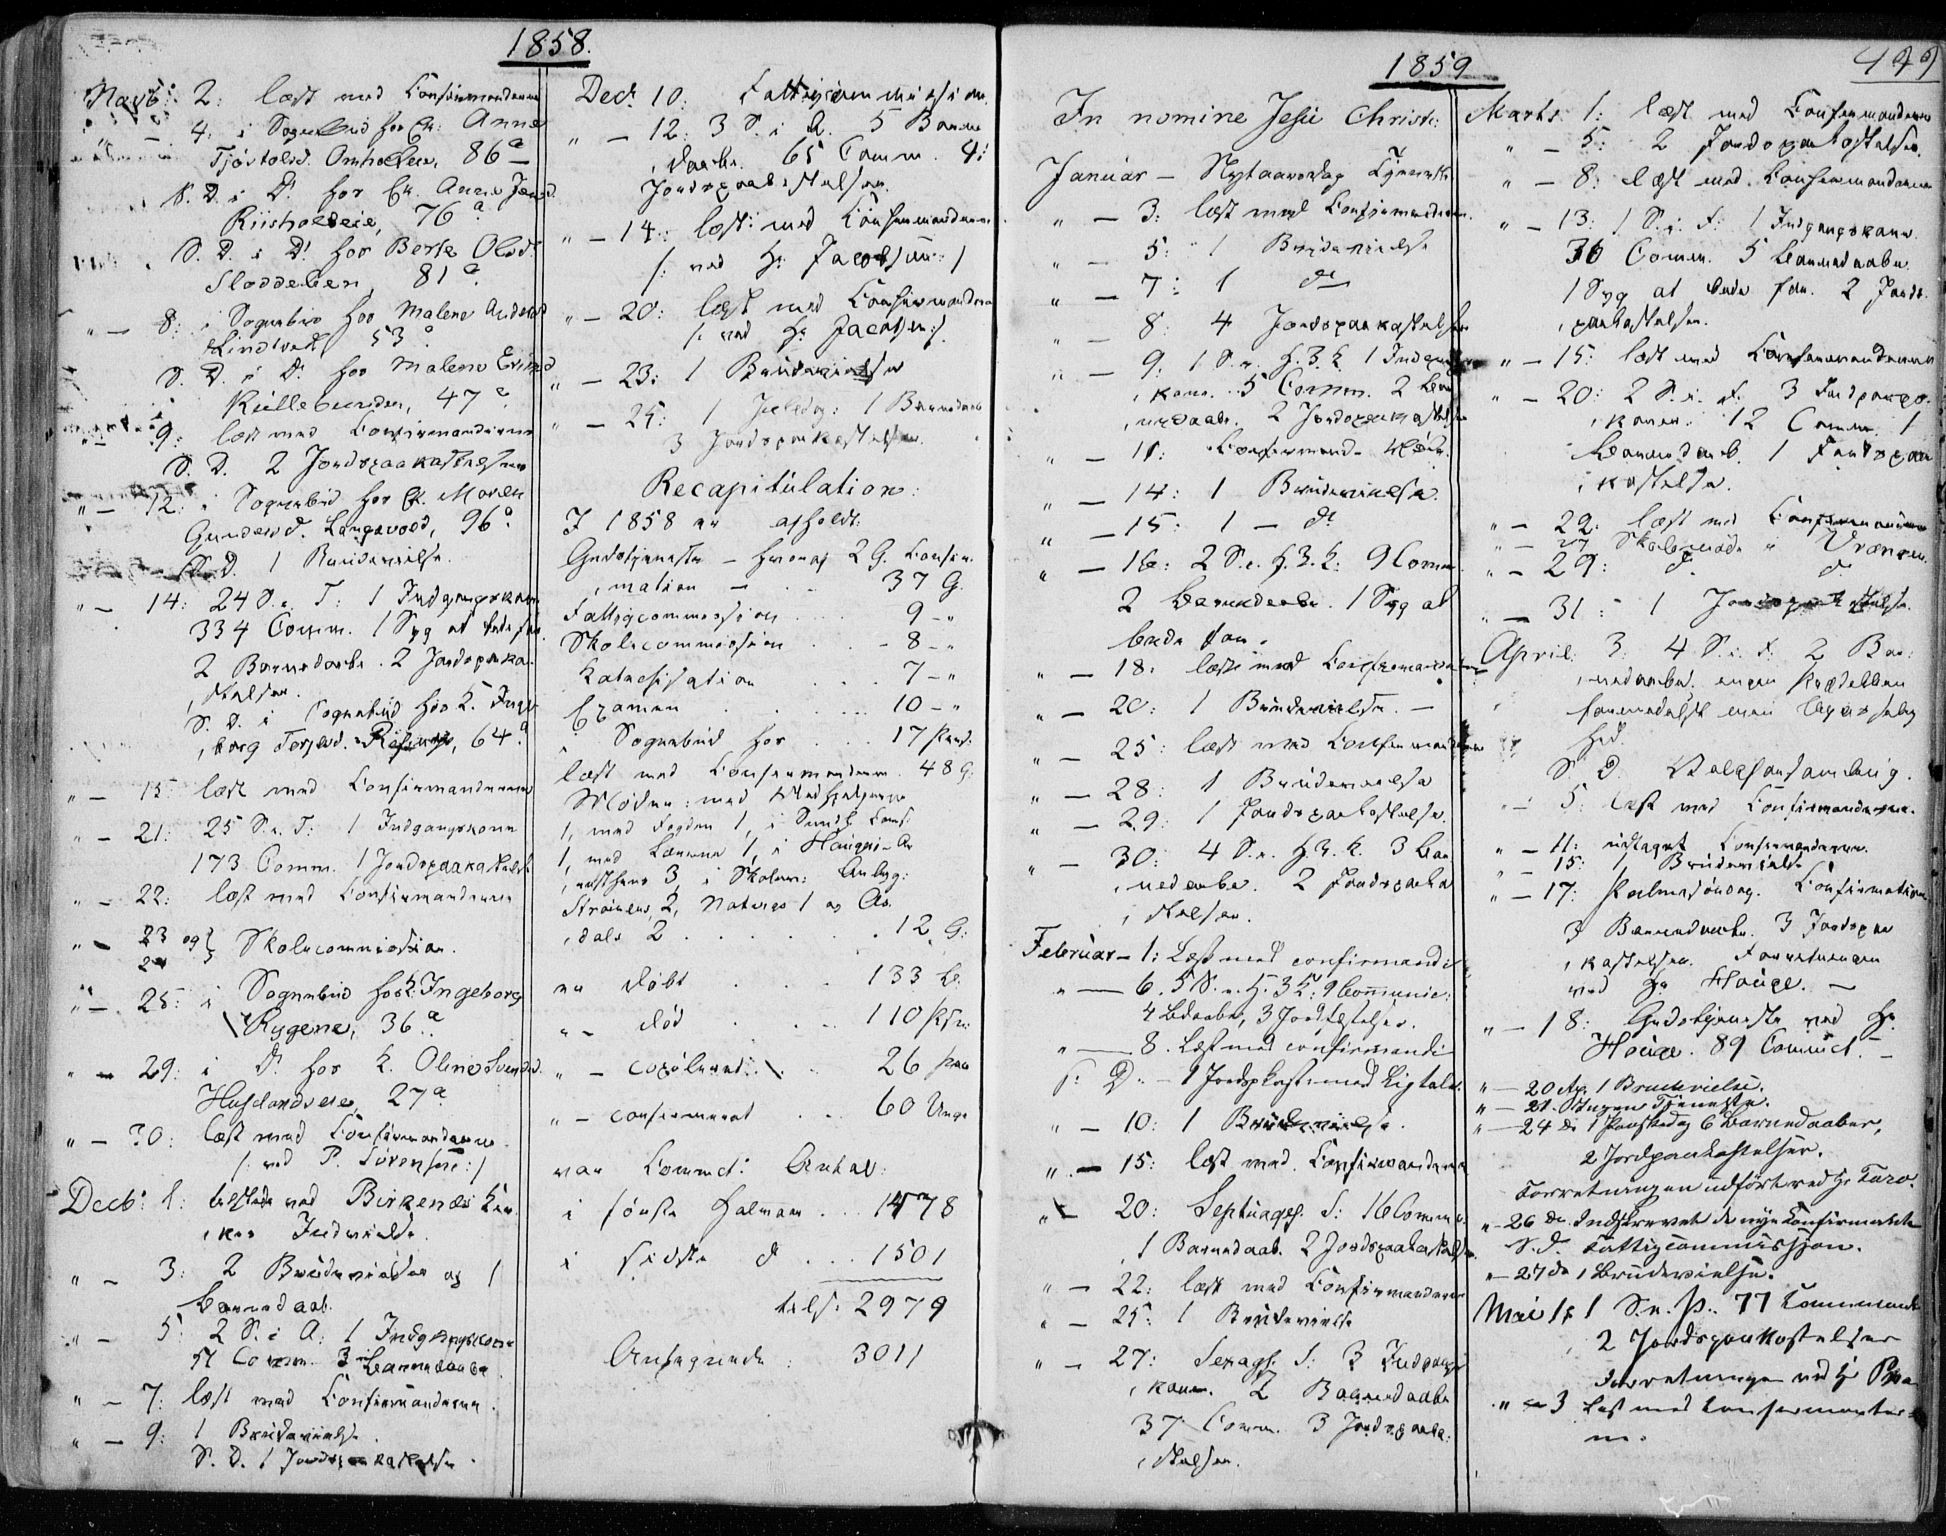 1858.
Novb: 2: læst med Confirmanderne
" — 4: i Sognebud hos Ek: Anne
Tjøstolsd. Omholten, 86 a
S. D. i Do hos Ek. Anne Jensd.
Riisholteie, 76 a
S. D. i Do hos Berte Olsdt.
81 a
" — 8: i Sognebud hos Malene Andersd
Lindtveit 53 a
S. D. i Do hos Malene Erinsd
47 a
9: læst med Confirmanderne
S. D. 2 Jordspaakastelser
" — 12: i Sognebud hos Ek. Maren
Gundersd. Langevold, 96 a
S. D. 1 Brudevielse.
" — 14: 24 S. e. T: 1 Indgangskone
334 Comm. 1 Syg at bede for
2 Barnedaabe. 2 Jordspaaka-
stelser.
S. D. i Sognebud hos K. Inge-
borg Terjesd. 64 a
" — 15: læst med Confirmanderne
" — 21: 25 S. e. T: 1 Indgangskone
173 Comm. 1 Jordspaakastelse
" — 22: læst med Confirmanderne
" — 23 og 24 Skolecommission.
" — 25: i Sognebud hos K. Ingeborg
Rygene, 36 a
" — 29: i Do hos K. Oline Svendsd.
27 a
" — 30: læst med Confirmanderne
/: ved P. Sørensen :/
Decb: 1: tilstede ved Birkenæs Kir-
kes Indvielse.
" — 3: 2 Brudevielser og 1
Barnedaab.
" — 5: 2 S. i A: 1 Indgangskone
51 Comm. 3 Barnedaabe
" — 7: læst med Confirmanderne
" — 9: 1 Brudevielse.
S. D. 1 Jordspaakastelse
Decb. 10: Fattigcommission.
" — 12: 3 S. i A. 5 Barne-
daabe. 65 Comm. 4
Jordspaakastelser.
" — 14: læst med Confirmanderne
/: ved Hr Jacobsen :/
" — 20: læst med Confirmanderne
/: ved Hr Jacobsen :/
" — 23: 1 Brudevielse
" — 25: 1 Juledag: 1 Barnedaab
3 Jordspaakastelser.
Recapitulation:
I 1858 er afholdt:
Gudstjeneste — hvoraf 2 G. Confir-
mation — 37 G.
Fattigcommission .... 9 - "
Skolecommission .. - 8 - "
Katechisation ... 7 - "
Examen ..... 10 - "
i Sognebud hos .. 17 Pers.
læst med Confirmanderne. 48 G.
1, med Fogden 1, i
1, med 1, i
3 i Skolen:
2, 1 og
dals 2 ....... 12 G.
er døbt ... 133 B.
" - død ... 110 Pers.
" - copuleret: .. 26 Par
" - confirmeret .. 60 Unge
var Commct: Antal:
i første Halvaar ... 1478
i sidste do ... 1501
tils: 2979
Angivende: 3011
1859
449
In nomine Jesu Christi:
Januar — Nytaarsdag
" — 3: læst med Confirmanderne.
" — 5: 1 Brudevielse
" — 7: 1 do
" — 8: 4 Jordspaakastelser
" — 9: 1 S. e. H.3.K. 1 Indgangs-
kone. 5 Comm. 2 Bar-
nedaabe. 2 Jordspaakastelser
" — 11:
" — 14: 1 Brudevielse.
" — 15: 1 — do
" — 16: 2 S. e. H.3.K: 9 Comm.
2 Barnedaabe. 1 Syg at
bede for.
" — 18: læst med Confirmanderne
" — 20: 1 Brudevielse. —
" — 25: læst med Confirmanderne
" — 28: 1 Brudevielse
" — 29: 1 Jordspaakastelse.
" — 30: 4 S. e. H.3.K. 3 Bar-
nedaabe. 2 Jordspaaka-
stelser.
Februar — 1: Læst med confirmandi
" — 6. 5 S. e. H. 3 K: 9 Communic:
4 Bdaabe, 3
" — 8. Læst med confirmandi
S. D. — 1 Jordspkast: med Ligtale
" — 10: 1 Brudevielse.
" — 15: læst med Confirmanderne
" — 20: Septuages. S: 16 Comm.
1 Barnedaab. 2 Jordspaakastelser.
" — 22: læst med Confirmanderne
" — 25: 1 Brudevielse
" — 27: Sexages. S: 3 Indgangs-
koner. 2 Barnedaabe
37 Comm. 3 Jordspaaka-
stelser.
Marts. 1: læst med Confirmanderne
" — 5: 2 Jordspaakastelser.
" — 8: læst med Confirmanderne
" — 13: 1 S. i. F: 1 Indgangskone
36 Comm. 5 Barnedaabe.
1 Syg at bede for. 2 Jords-
paakastelser.
" — 15: læst med Confirmanderne
" — 20: 2 S. i. F. 3 Indgangs-
koner. 12 Comm. 1
Barnedaab. 1 Jordspaa-
kastelse.
" — 22: læst med Confirmanderne
" — Skolemøde i Vrængen
" — 29: do do
" — 31: 1 Jordspaakastelse.
April 3. 4 S. i. F: 2 Bar-
nedaabe. ingen Prædiken
S. D. Valgforsamling.
" — 5: læst med Confirmanderne.
" — 11: Confirmanderne.
" — 15: 1 Brudevielse
" — 17: Palmesøndag. Confirmation
3 Barnedaabe. 3 Jordspaa-
kastelser. Forretningen
ved Hr Houge. —
" — 18: Gudstjeneste ved Hr
Houge. 89 Commct. —
" — 20 Ap. 1 Brudevielse.
" — 21. Ingen Tjeneste.
" — 24 de 1 Paaskedag 6 Barnedaaber,
2 Jordpaakastelser.
Forretningen udført ved Hr Faro.
" — 26 de. Indskrevet de nye Confirmander
S. d. Fattigcommission.
" — 27 de 1 Brudevielse.
Mai 1: 1 S. e. P.. 77 Communic
2 Jordspaakastelser
Forretningen ved Hr
" — 3 Læst med Confirmanter-
ne.